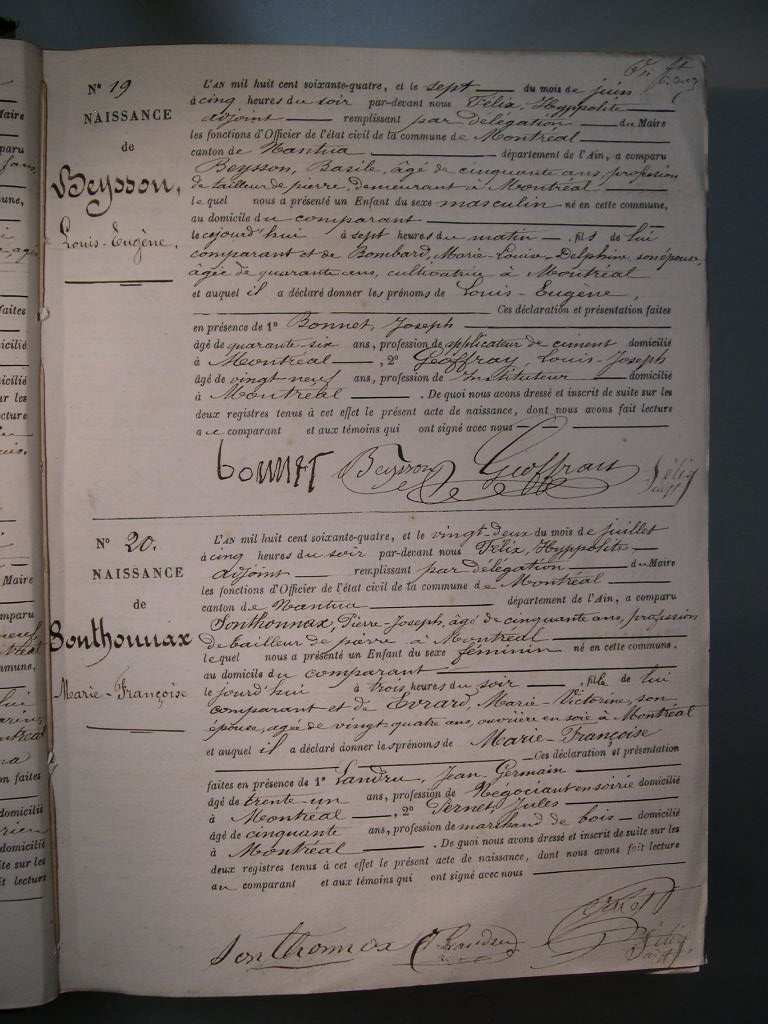 N° 19
NAISSANCE
de
Beysson,
Louis-Eugène,
L'AN mil huit cent soixante-quatre, et le sept du mois de juin
à cinq heures du soir par-devant nous Félix, Hyppolite
adjoint remplissant par délégation du Maire
les fonctions d'Officier de l'état civil de la commune de Montréal
canton de Nantua département de l'Ain, a comparu
Beysson, Basile, âgé de cinquante ans, profession
de tailleur de pierre, demeurant à Montréal
lequel nous a présenté un Enfant du sexe masculin né en cette commune,
au domicile du comparant
le cejourd'hui à sept heures du matin, fils de lui
comparant et de Bombard, Marie-Louise-Delphine, son épouse,
âgée de quarante ans, cultivatrice à Montréal
et auquel il a déclaré donner les prénoms de Louis-Eugène,
Ces déclaration et présentation faites
en présence de 1° Bonnet, Joseph
âgé de quarante-six ans, profession de applicateur de ciment domicilié
à Montréal, 2° Geoffray, Louis-Joseph
âgé de vingt-neuf ans, profession de Instituteur domicilié
à Montréal. De quoi nous avons dressé et inscrit de suite sur les
deux registres tenus à cet effet le présent acte de naissance, dont nous avons fait lecture
au comparant et aux témoins qui ont signé avec nous
bonnet Beysson Geoffray Félix
adjt
N° 20.
NAISSANCE
de
Sonthonnax
Marie-Françoise
L'AN mil huit cent soixante-quatre, et le vingt-deux du mois de juillet
à cinq heures du soir par-devant nous Félix, Hyppolite
adjoint remplissant par délégation du Maire
les fonctions d'Officier de l'état civil de la commune de Montréal
canton de Nantua département de l'Ain, a comparu
Sonthonnax, Pierre-Joseph, âgé de cinquante ans, profession
de tailleur de pierre à Montréal
lequel nous a présenté un Enfant du sexe féminin né en cette commune,
au domicile du comparant
le jourd'hui à trois heures du soir, fille de lui
comparant et de Evrard, Marie-Victorine, son
épouse, agée de vingt quatre ans, ouvrière en soie à Montréal
et auquel il a déclaré donner les prénoms de Marie-Françoise
Ces déclaration et présentation
faites en présence de 1° Landru, Jean Germain
âgé de trente-un ans, profession de Négociant en soirie domicilié
à Montréal, 2° Vernet, Jules
âgé de cinquante ans, profession de marchand de bois domicilié
à Montréal. De quoi nous avons dressé et inscrit de suite sur les
deux registres tenus à cet effet le présent acte de naissance, dont nous avons fait lecture
au comparant et aux témoins qui ont signé avec nous
Sonthonnax Landru Vernet
Félix
adjt